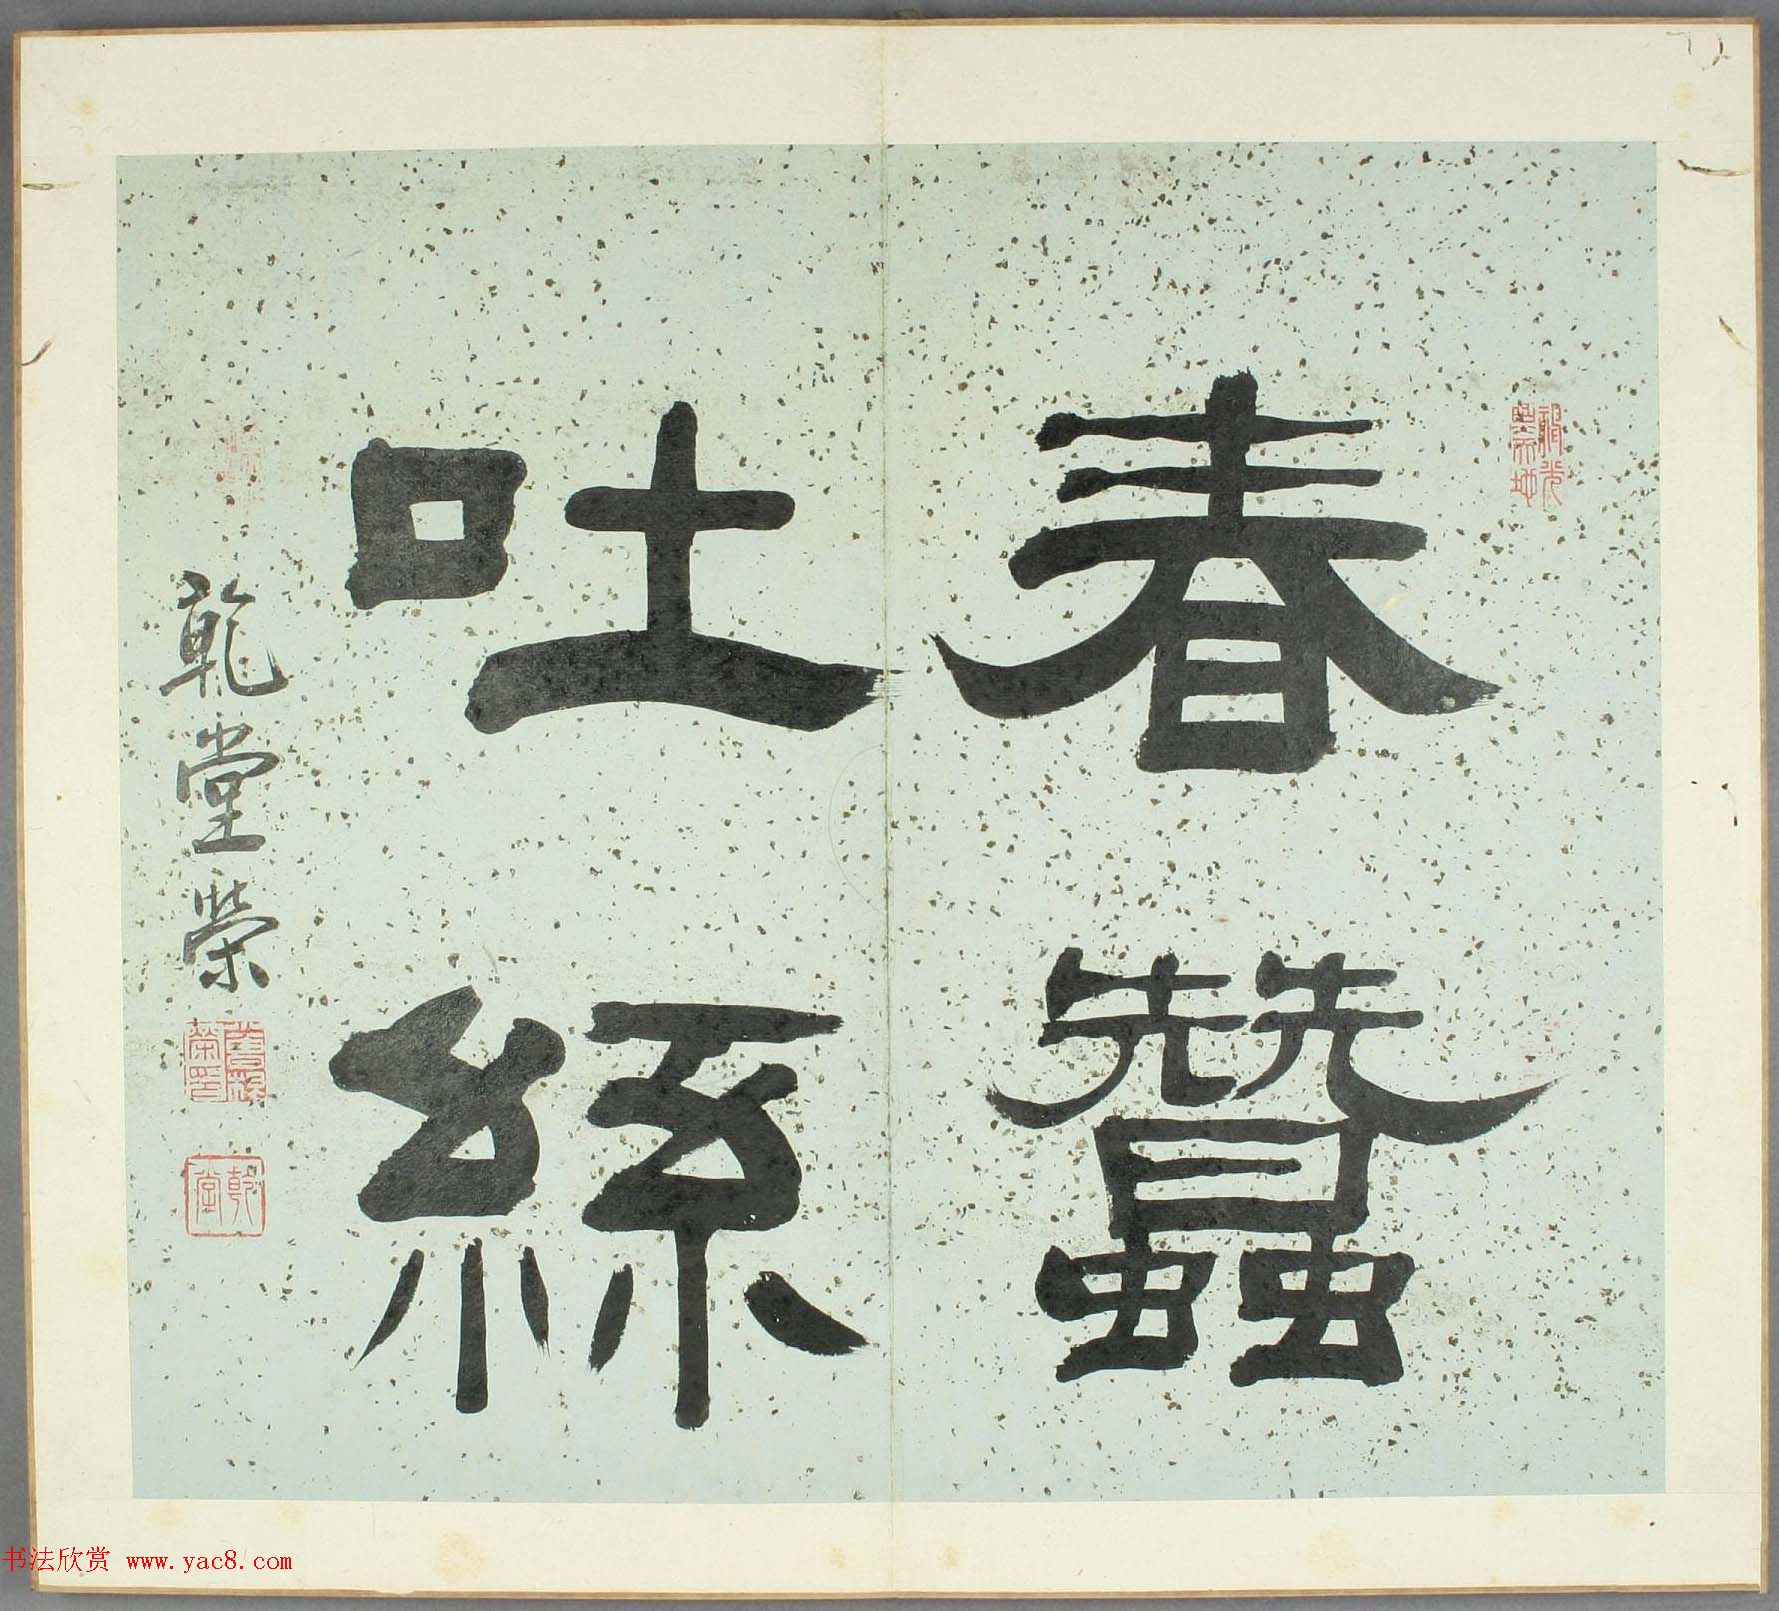 春蠶
吐絲
乾堂榮
乾堂
书法欣赏 www.yac8.com